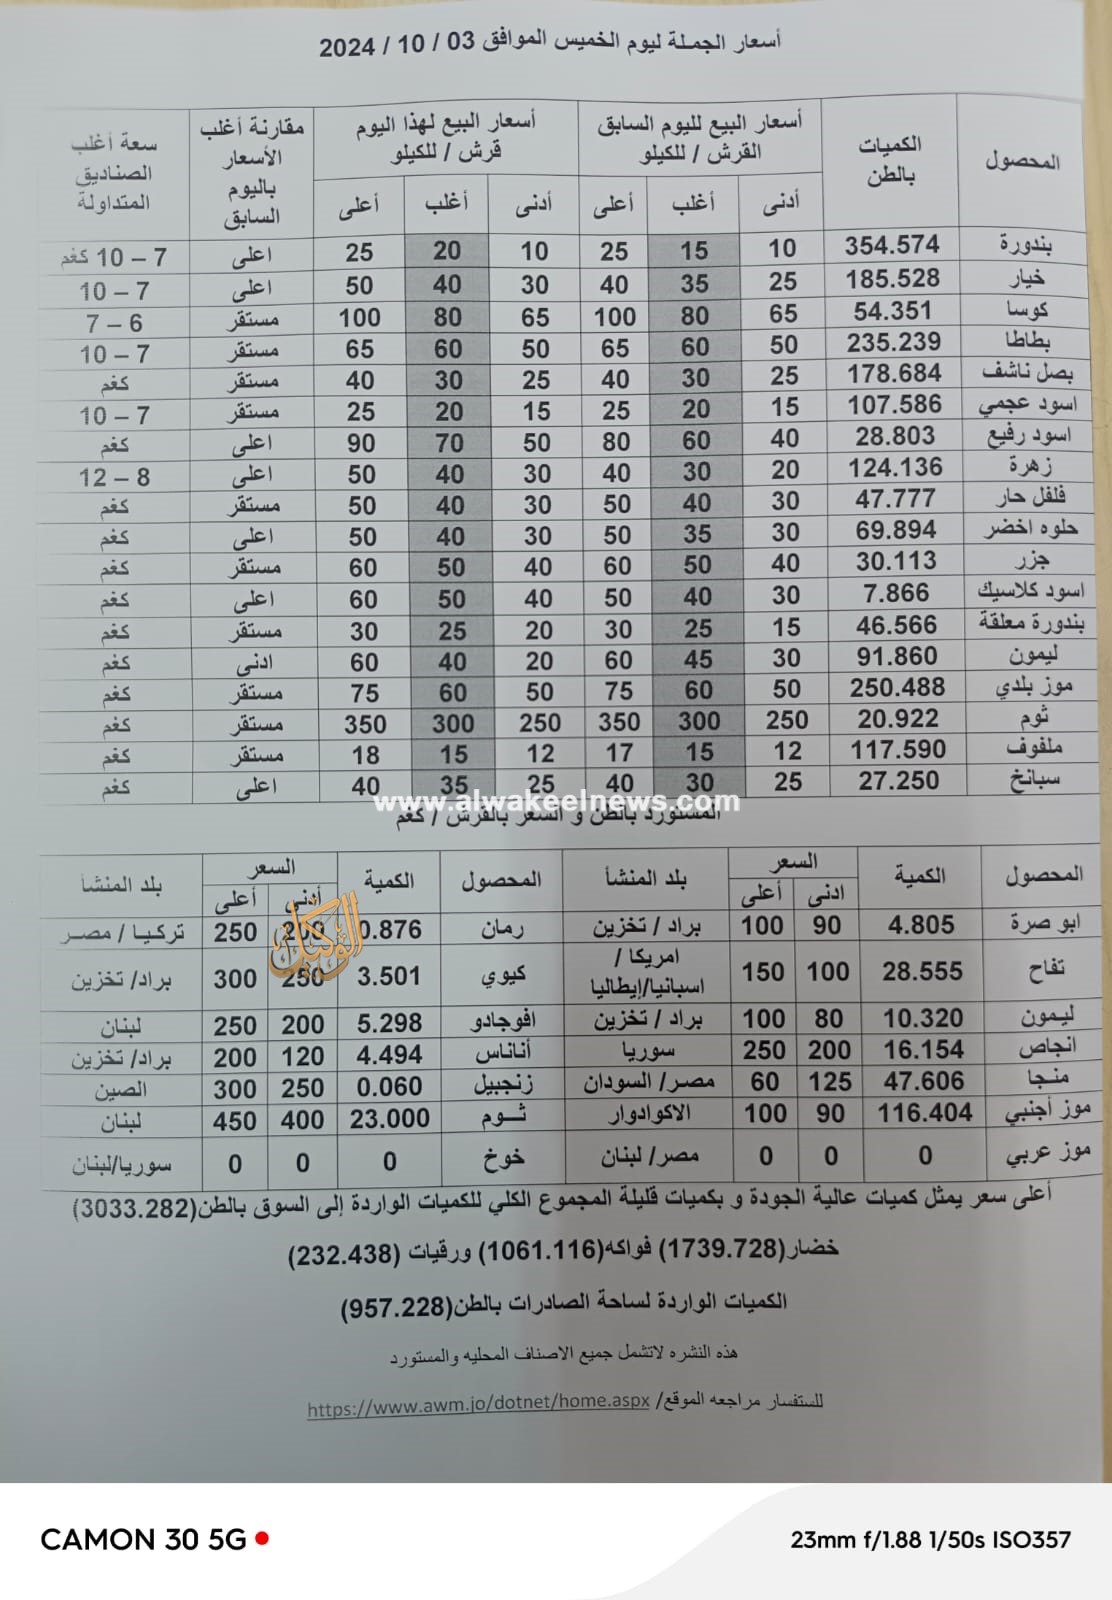 أسعار الجملة ليوم الخميس الموافق 03 / 10 / 2024
المحصول الكميات بالطن أسعار البيع لليوم السابق القرش / للكيلو أسعار البيع لهذا اليوم قرش / للكيلو مقارنة أغلب الأسعار باليوم السابق سعة أغلب الصناديق المتداولة
أدنى أغلب أعلى أدنى أغلب أعلى
بندورة 354.574 10 15 25 10 20 25 اعلى 7 – 10 كغم
خيار 185.528 25 35 40 30 40 50 اعلى 7 – 10
كوسا 54.351 65 80 100 65 80 100 مستقر 6 – 7
بطاطا 235.239 50 60 65 50 60 65 مستقر 7 – 10
بصل ناشف 178.684 25 30 40 25 30 40 مستقر كغم
اسود عجمي 107.586 15 20 25 15 20 25 مستقر 7 – 10
اسود رفيع 28.803 40 60 80 50 70 90 اعلى كغم
زهرة 124.136 20 30 40 30 40 50 اعلى 8 – 12
فلفل حار 47.777 30 40 50 30 40 50 مستقر كغم
حلوه اخضر 69.894 30 35 50 30 40 50 اعلى كغم
جزر 30.113 40 50 60 40 50 60 مستقر كغم
اسود كلاسيك 7.866 30 40 50 40 50 60 اعلى كغم
بندورة معلقة 46.566 15 25 30 20 25 30 مستقر كغم
ليمون 91.860 30 45 60 20 40 60 ادنى كغم
موز بلدي 250.488 50 60 75 50 60 75 مستقر كغم
ثوم 20.922 250 300 350 250 300 350 مستقر كغم
ملفوف 117.590 12 15 17 12 15 18 مستقر كغم
سبانخ 27.250 25 30 40 25 35 40 اعلى كغم
www.alwakeelnews.com
المستورد بالطن و السعر بالقرش / كغم
المحصول الكمية السعر بلد المنشأ المحصول الكمية السعر بلد المنشأ
ادنى أعلى أدنى أعلى
ابو صرة 4.805 90 100 براد / تخزين رمان 0.876 200 250 تركيا / مصر
تفاح 28.555 100 150 امريكا / اسبانيا/إيطاليا كيوي 3.501 250 300 براد/ تخزين
ليمون 10.320 80 100 براد / تخزين افوجادو 5.298 200 250 لبنان
انجاص 16.154 200 250 سوريا أناناس 4.494 120 200 براد/ تخزين
منجا 47.606 125 60 مصر/ السودان زنجبيل 0.060 250 300 الصين
موز أجنبي 116.404 90 100 الاكوادوار ثوم 23.000 400 450 لبنان
موز عربي 0 0 0 مصر/ لبنان خوخ 0 0 0 سوريا/لبنان
الوكيل
أعلى سعر يمثل كميات عالية الجودة و بكميات قليلة المجموع الكلي للكميات الواردة إلى السوق بالطن(3033.282)
خضار(1739.728) فواكه(1061.116) ورقيات (232.438)
الكميات الواردة لساحة الصادرات بالطن(957.228)
هذه النشره لاتشمل جميع الاصناف المحليه والمستورد
للستفسار مراجعه الموقع/ https://www.awm.jo/dotnet/home.aspx
CAMON 30 5G
23mm f/1.88 1/50s ISO357